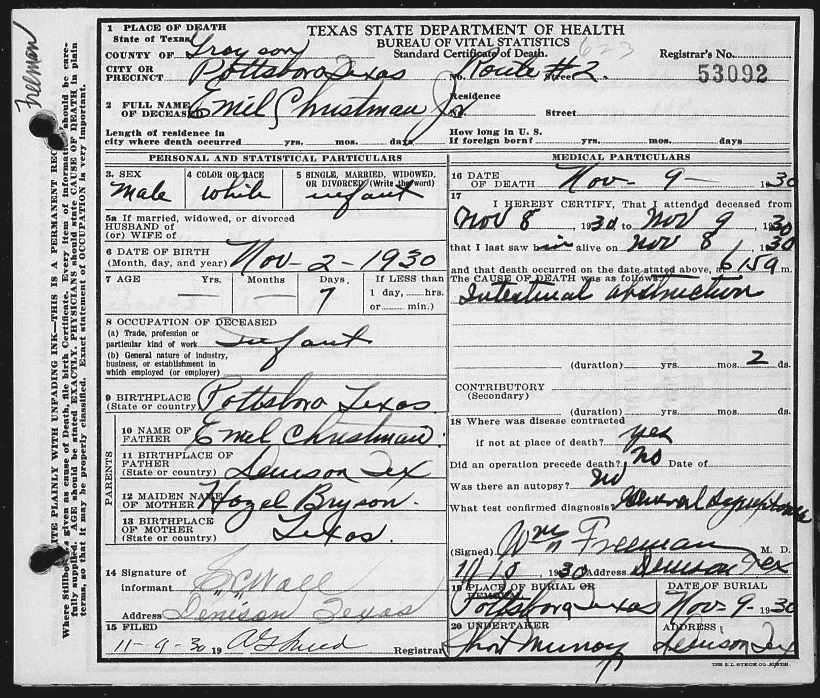 Freeman
WRITE PLAINLY WITH UNFADING INK—THIS IS A PERMANENT RECORD. Every item of information should be care-
fully supplied. AGE should be stated EXACTLY. PHYSICIANS should state CAUSE OF DEATH in plain
terms, so that it may be properly classified. Exact statement of OCCUPATION is very important.
Where Stillborn is given as cause of Death, file birth Certificate.
TEXAS STATE DEPARTMENT OF HEALTH
BUREAU OF VITAL STATISTICS
Standard Certificate of Death.
623
Registrar's No.
53092
1 PLACE OF DEATH
State of Texas
COUNTY OF Grayson
CITY OR PRECINCT Pottsboro Texas No. Route #2 Street
2 FULL NAME OF DECEASED Emel Christman Jr
Residence No. Street
Length of residence in city where death occurred yrs. mos. days
How long in U. S. If foreign born? yrs. mos. days
PERSONAL AND STATISTICAL PARTICULARS
3. SEX Male
4 COLOR OR RACE White
5 SINGLE, MARRIED, WIDOWED, OR DIVORCED (Write the word) infant
5a If married, widowed, or divorced
HUSBAND OF
(or) WIFE of
6 DATE OF BIRTH
(Month, day, and year) Nov-2-1930
7 AGE Yrs. — Months — Days, 7
If LESS than 1 day,....hrs. or......min.)
8 OCCUPATION OF DECEASED
(a) Trade, profession or particular kind of work Infant
(b) General nature of industry, business, or establishment in which employed (or employer)
9 BIRTHPLACE
(State or country) Pottsboro Texas.
PARENTS
10 NAME OF FATHER Emel Christman.
11 BIRTHPLACE OF FATHER
(State or country) Denison Tex
12 MAIDEN NAME OF MOTHER Hazel Bryson.
13 BIRTHPLACE OF MOTHER
(State or country) Texas.
14 Signature of informant E. C. Wall
Address Denison Texas
15 FILED 11-9-30 19
Registrar
MEDICAL PARTICULARS
16 DATE OF DEATH Nov-9- 1930
17 I HEREBY CERTIFY, That I attended deceased from
Nov 8, 1930 to Nov 9, 1930
that I last saw him alive on Nov 8, 1930
and that death occurred on the date stated above, at 6159 m.
The CAUSE OF DEATH was as follows:
Intestinal obstruction
(duration) yrs. mos. 2 ds.
CONTRIBUTORY
(Secondary)
(duration) yrs. mos. ds.
18 Where was disease contracted
if not at place of death? yes
Did an operation precede death? No Date of
Was there an autopsy? No
What test confirmed diagnosis? General Symptoms
(Signed) Wm Freeman M. D.
1930 Address Denison Tex
19 PLACE OF BURIAL OR REMOVAL Pottsboro Texas
DATE OF BURIAL Nov-9- 1930
20 UNDERTAKER Short Murray
ADDRESS Denison Tex